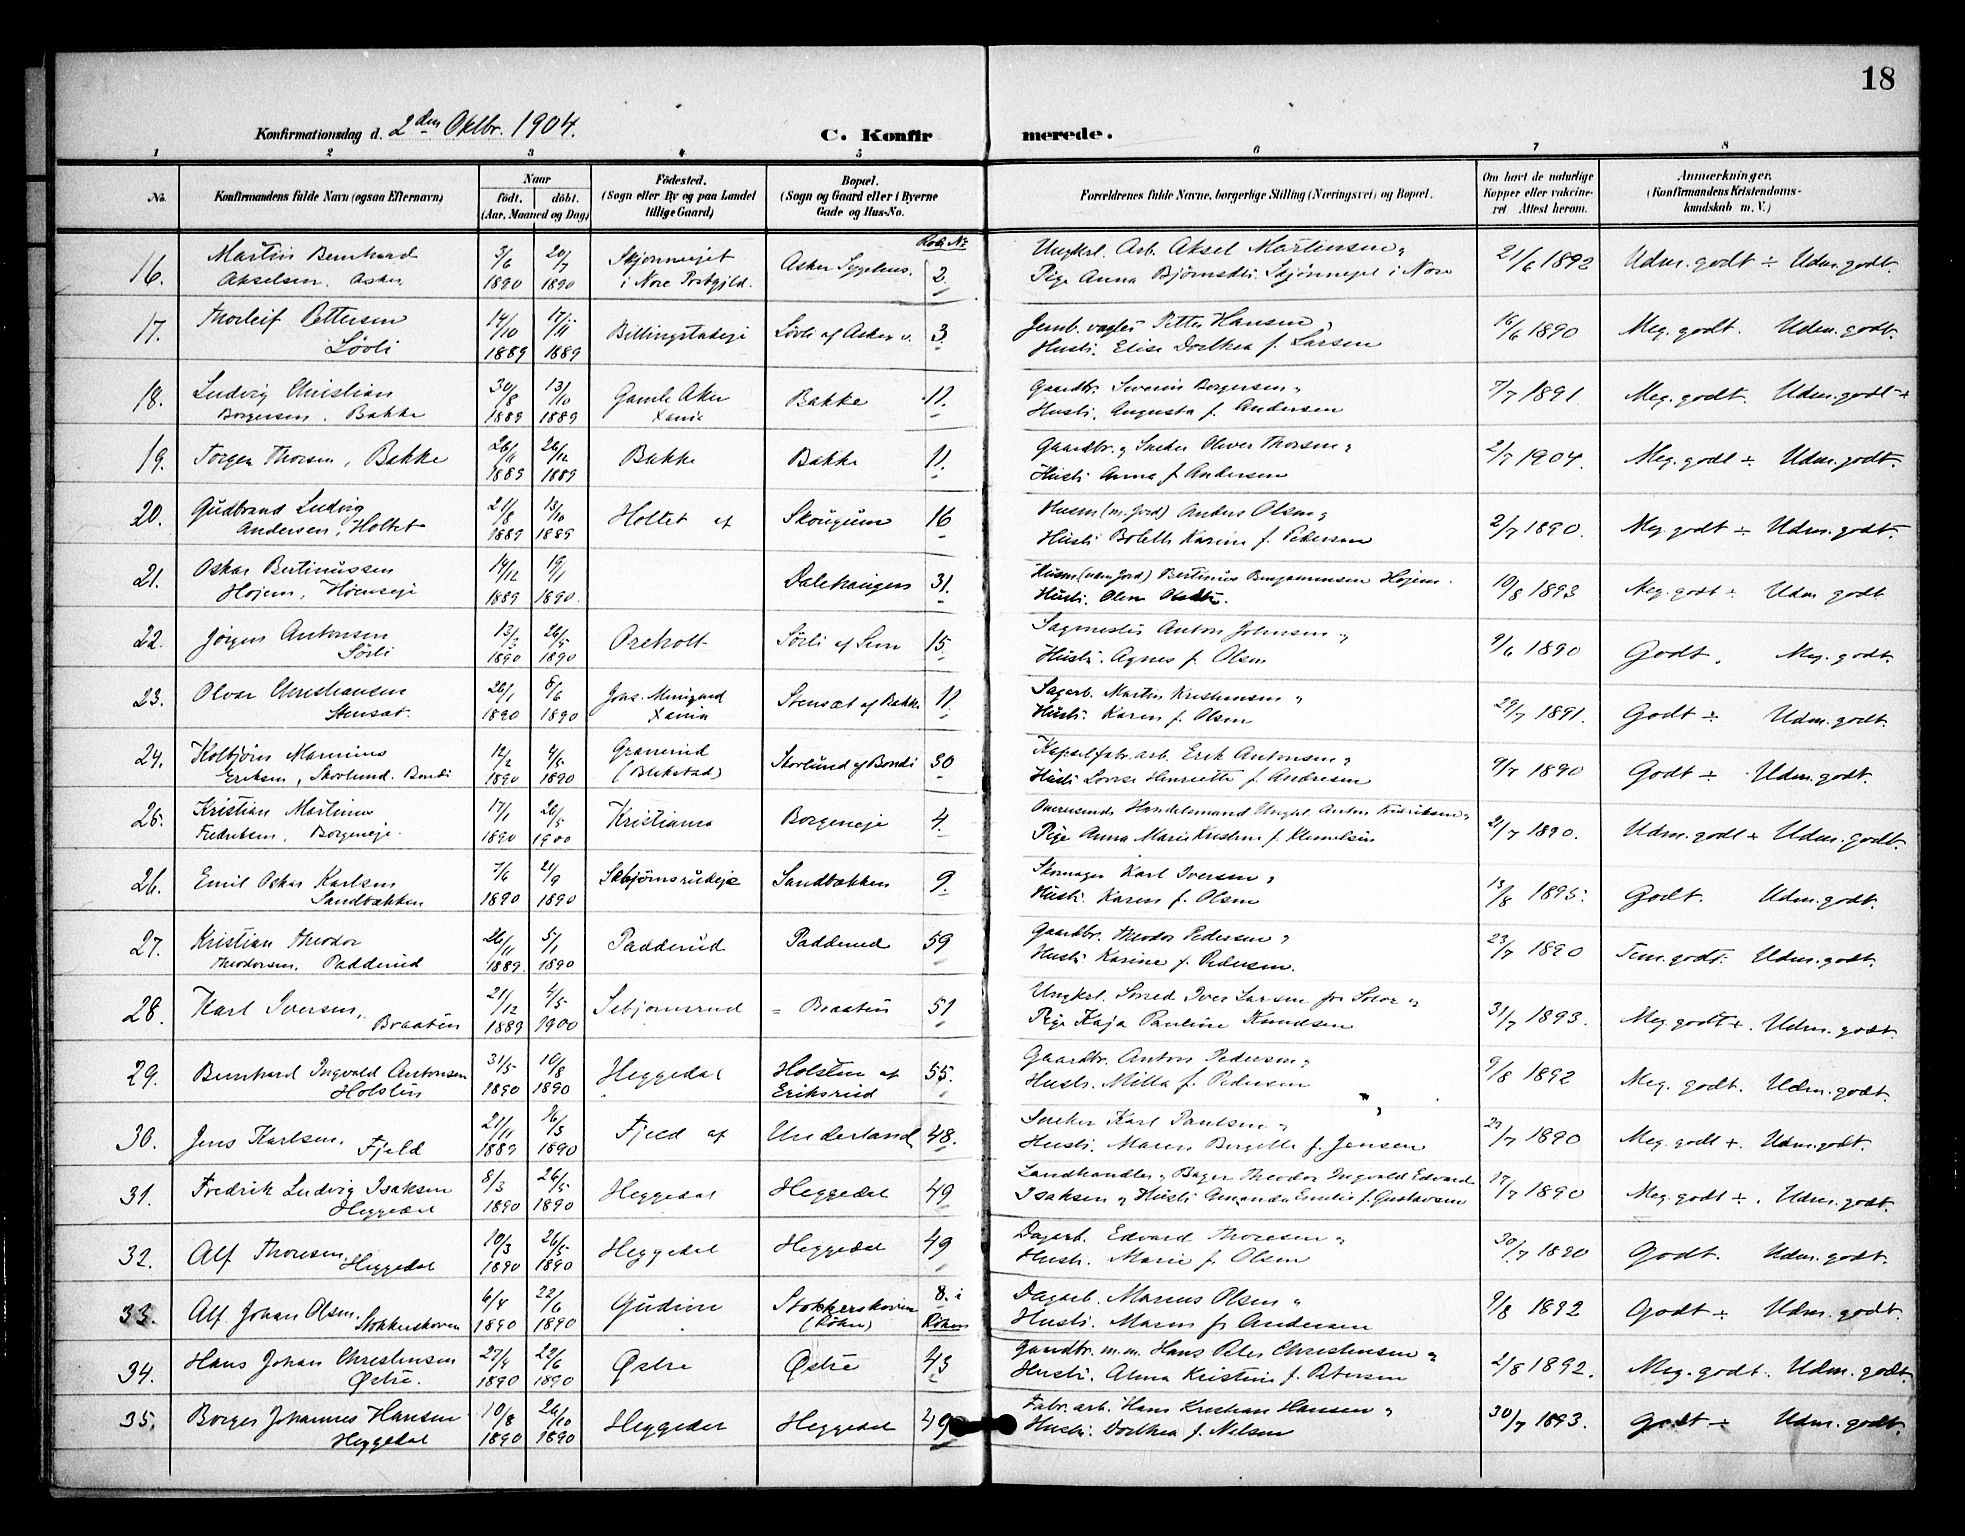 18
Konfirmationsdag d. 2den Oktbr. 1904.
C. Konfirmerede.
1 2 3 4 5 6 7 8
No. Konfirmandens fulde Navn (ogsaa Efternavn) Naar født. døbt. (Aar, Maaned og Dag) Fødested. (Sogn eller By og paa Landet tillige Gaard) Bopæl. (Sogn og Gaard eller i Byerne Gade og Hus-No. Forældrenes fulde Navne, borgerlige Stilling (Næringsvei) og Bopæl. Om havt de naturlige Kopper eller vaccineret Attest herom. Anmerkninger. (Konfirmandens Kristendomskundskab m. V.)
16. Martin Bernhard 3/6 20/7 Asker Sygehus. 2. Ungkrl. Arb. Aksel Martinsen 21/6 1892 Udm. godt ÷ Udm. godt.
Akselsen. Asker 1890 1890 i Nore Prstgjld. Pige Anna i Nore
17. Thorleif Pettersen 14/10 17/11 Billingstadeje Løvli af Asker 3. Jernb. vogter Petter Hansen 16/6 1890 Meg. godt. Udm. godt.
Løvli 1889 1889 Hustr. Elise Dorthea f. Larsen
18. Ludvig Christian 30/8 13/10 Gamle Aker Bakke 11. Gaardbr. Severin Borgersen 7/7 1891 Meg. godt. Udm. godt +
Borgersen. Bakke 1889 1889 Xania Hustr. Augusta f. Andersen
19. Torger Thorsen, Bakke 26/11 26/12 Bakke Bakke 11. Gaardbr. og Oliver Thorsen 2/7 1904. Meg. godt ÷ Udm. godt.
1889 1889 Hustr. Anna f. Andersen
20. Gudbrand Ludvig 21/8 13/10 Holtet af Skougum 16 Husm (m. jord) Anders Olsen 2/7 1890. Meg. godt ÷ Udm. godt.
Andersen, Holtet 1889 1889 Hustr. Boletth Karine f. Pedersen
21. Oskar Bertinussen 14/12 19/1 Dalehaugen 31. Husm (uden jord) Bertinus Benjaminsen Højem 10/8 1893 Meg. godt ÷ Udm godt
Højem, 1889 1890. Hustr. Olene
22. Jørgen Antonsen 13/3 26/5 Oreholt Sørli af Sem 15. Sagmester Anton Johnsen 9/6 1890 Godt. Meg. godt.
Sørli 1890 1890 Hustr. Agnes f. Olsen
23. Olvar Christiansen 26/1 8/6 Stensæt af Bakke 11. Sagarb. Martin Kristensen 29/7 1891. Godt ÷ Udm. godt.
Stensæt. 1890 1890 Xania Hustr. Karen f. Olsen
24. Kolbjørn Marinius 12/2 4/5 Granerud Skovlund af Bondi 30 Kapselfabr. arb. Erik Antonsen 9/7 1890 Godt ÷ Udm. godt.
Eriksen, Skovlund. Bondi 1890 1890 (Blekstad) Hustr. Lovise Henriette f. Andresen
25. Kristian Martinus 17/1 26/5 Kristiania Borgeneje 4. Handelsmand Ungkl Anton Fredriksen 2/7 1890. Udm. godt + Udm. godt.
Fredriksen, Borgeneje. 1890 1900 Pige Anna Marie Kristine f.
26. Emil Oskar Karlsen 7/6 21/9 Sandbækken 9. Skomager Karl Iversen 13/8 1895. Godt. Udm. godt.
Sandbækken 1890 1890 Hustr. Karen f. Olsen
27. Kristian Theodor 26/11 5/1 Padderud Padderud 59 Gaardbr. Theodor Pedersen 23/7 1890 Tem. godt. Udm. godt.
Theodorsen. Padderud 1889. 1890 Hustr. Karine f. Pedersen.
28. Karl Iversen, 21/12 4/5 Sebjørnsrud " Braaten 51 Ungkrl. Smed Iver Larsen fra Solør 31/7 1893. Meg. godt +. Udm. godt.
Braaten 1889 1900 Pige Kaja Pauline Knudsen
29. Bernhard Ingvald Antonsen 31/5 10/8 Heggedal Holsten af 55. Gaardbr. Anton Pedersen 9/8 1892 Meg. godt. Udm. godt.
Holsten 1890 1890 Eriksrud Hustr. Mitta f. Pedersen
30. Jens Karlsen, 21/11 26/5 Fjeld af Underland 48. Sneker Karl Paulsen 29/7 1890 Meg. godt +. Udm. godt.
Fjeld 1889 1890 Hustr. Maren Birgitte f. Jensen
31. Fredrik Ludvig Isaksen 8/3 26/5 Heggedal Heggedal 49 Landhandler og Bager Theodor Ingvald Edvard 17/7 1890 Meg. godt ÷. Udm. godt.
Heggedal 1890 1890 Isaksen og Hustr. Amanda Emilie f. Gustavsen
32. Alf Thoresen, 10/3 26/5 Heggedal Heggedal 49 Dagarb. Edvard Thoresen 30/7 1890 Godt. Udm. godt.
Heggedal 1890 1890 Hustr. Marie f. Olsen
33. Alf Johan Olsen, 6/4 22/6 Gudim Stokkerskoven 8. i Dagarb. Marius Olsen 9/8 1892 Godt ÷ Udm. godt.
Stokkerskoven 1890 1890 (Røken) Røken Hustr. Maren f. Andersen
34. Hans Johan Christensen 27/4 22/6 Østre Østre 43 Gaardbr. m.m. Hans Peter Christensen 2/8 1892. Meg. godt. Udm. godt.
Østre. 1890 1890 Hustr. Anna Kristine f. Petersen
35. Borger Johannes Hansen 10/8 26/10 Heggedal Heggedal 49 Fabr. arb. Hans Kristian Hansen 30/7 1893. Godt ÷ Udm. godt.
Heggedal 1890 1890 Hustr. Dorthea f. Nelsen